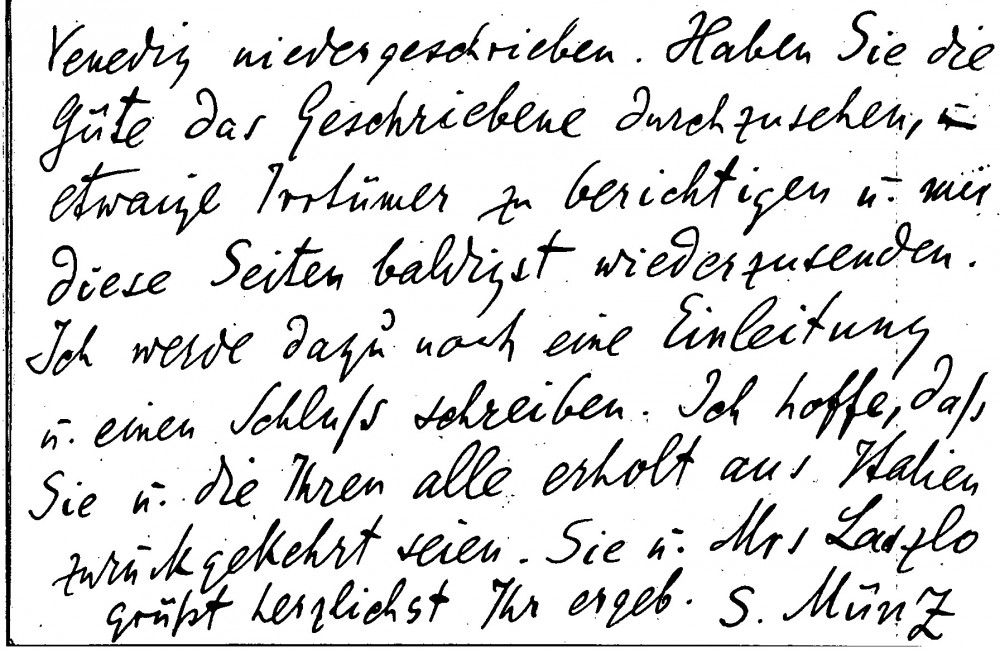 Venedig niedergeschrieben. Haben Sie die
Güte das Geschriebene durchzusehen, u
etwaige Irrtümer zu berichtigen u. mir
diese Seiten baldigst wiederzusenden.
Ich werde dazu noch eine Einleitung
u. einen Schluſs schreiben. Ich hoffe, daſs
Sie u. die Ihren alle erholt aus Italien
zurückgekehrt seien. Sie u. Mrs Laszlo
grüßt herzlichst Ihr ergeb. S. Münz